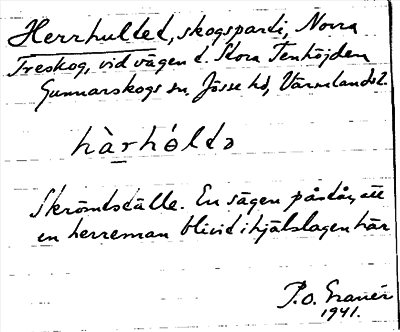 Herrhultet, skogsparti, Norra
Treskog, vid vägen t. Stora Tenhöjden
Gunnarskogs sn, Jösse hd, Värmlands l.
hàrhóltə
Skrömtställe. En sägen påstår, att
en herreman blivit ihjälslagen här
P.O. Granér
1941.